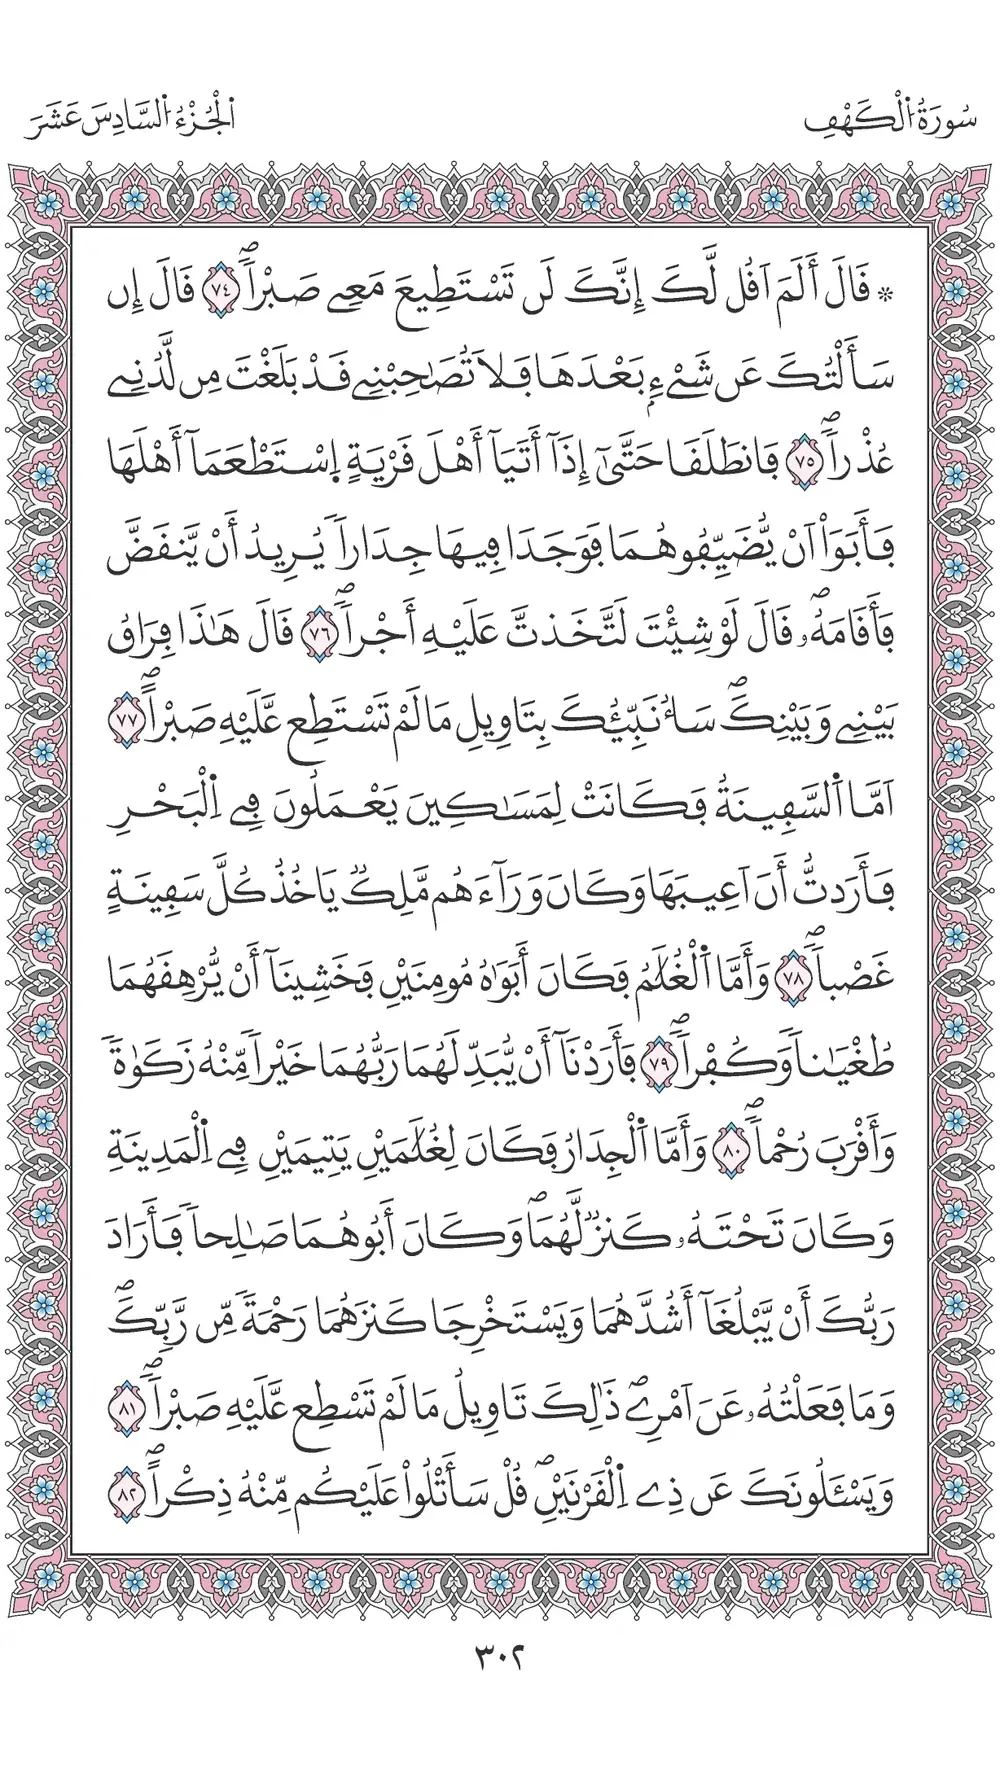 سُورَةُ اُ۬لْكَهْفِ
اَ۬لْجُزْءُ اُ۬لسَّادِسَ عَشَرَ
* قَالَ أَلَمَ اَقُل لَّكَ إِنَّكَ لَن تَسْتَطِيعَ مَعِے صَبْراٗۖ ٧٤ قَالَ إِن
سَأَلْتُكَ عَن شَےْءِۢ بَعْدَهَا فَلَا تُصَٰحِبْنِے قَدْ بَلَغْتَ مِن لَّدُنِے
عُذْراٗۖ ٧٥ فَانطَلَقَا حَتَّىٰٓ إِذَآ أَتَيَآ أَهْلَ قَرْيَةٍ اِ۪سْتَطْعَمَآ أَهْلَهَا
فَأَبَوَاْ اَنْ يُّضَيِّفُوهُمَا فَوَجَدَا فِيهَا جِدَاراٗ يُرِيدُ أَنْ يَّنقَضَّ
فَأَقَامَهُۥۖ قَالَ لَوْ شِئْتَ لَتَّخَذتَّ عَلَيْهِ أَجْراٗۖ ٧٦ قَالَ هَٰذَا فِرَاقُ
بَيْنِے وَبَيْنِكَۖ سَأُنَبِّئُكَ بِتَاوِيلِ مَا لَمْ تَسْتَطِع عَّلَيْهِ صَبْراًۖ ٧٧
اَمَّا اَ۬لسَّفِينَةُ فَكَانَتْ لِمَسَٰكِينَ يَعْمَلُونَ فِے اِ۬لْبَحْرِ
فَأَرَدتُّ أَنَ اَعِيبَهَا وَكَانَ وَرَآءَهُم مَّلِكٞ يَاخُذُ كُلَّ سَفِينَةٍ
غَصْباٗۖ ٧٨ وَأَمَّا اَ۬لْغُلَٰمُ فَكَانَ أَبَوَٰهُ مُومِنَيْنِ فَخَشِينَآ أَنْ يُّرْهِقَهُمَا
طُغْيَٰناٗ وَكُفْراٗۖ ٧٩ فَأَرَدْنَآ أَنْ يُّبَدِّلَهُمَا رَبُّهُمَا خَيْراٗ مِّنْهُ زَكَوٰةٗ
وَأَقْرَبَ رُحْماٗۖ ٨٠ وَأَمَّا اَ۬لْجِدَارُ فَكَانَ لِغُلَٰمَيْنِ يَتِيمَيْنِ فِے اِ۬لْمَدِينَةِ
وَكَانَ تَحْتَهُۥ كَنزٞ لَّهُمَاۖ وَكَانَ أَبُوهُمَا صَٰلِحاٗ فَأَرَادَ
رَبُّكَ أَنْ يَّبْلُغَآ أَشُدَّهُمَا وَيَسْتَخْرِجَا كَنزَهُمَا رَحْمَةٗ مِّن رَّبِّكَۖ
وَمَا فَعَلْتُهُۥ عَنَ اَمْرِےۖ ذَٰلِكَ تَاوِيلُ مَا لَمْ تَسْطِع عَّلَيْهِ صَبْراٗۖ ٨١
وَيَسْـَٔلُونَكَ عَن ذِے اِ۬لْقَرْنَيْنِۖ قُلْ سَأَتْلُواْ عَلَيْكُم مِّنْهُ ذِكْراًۖ ٨٢
٣٠٢